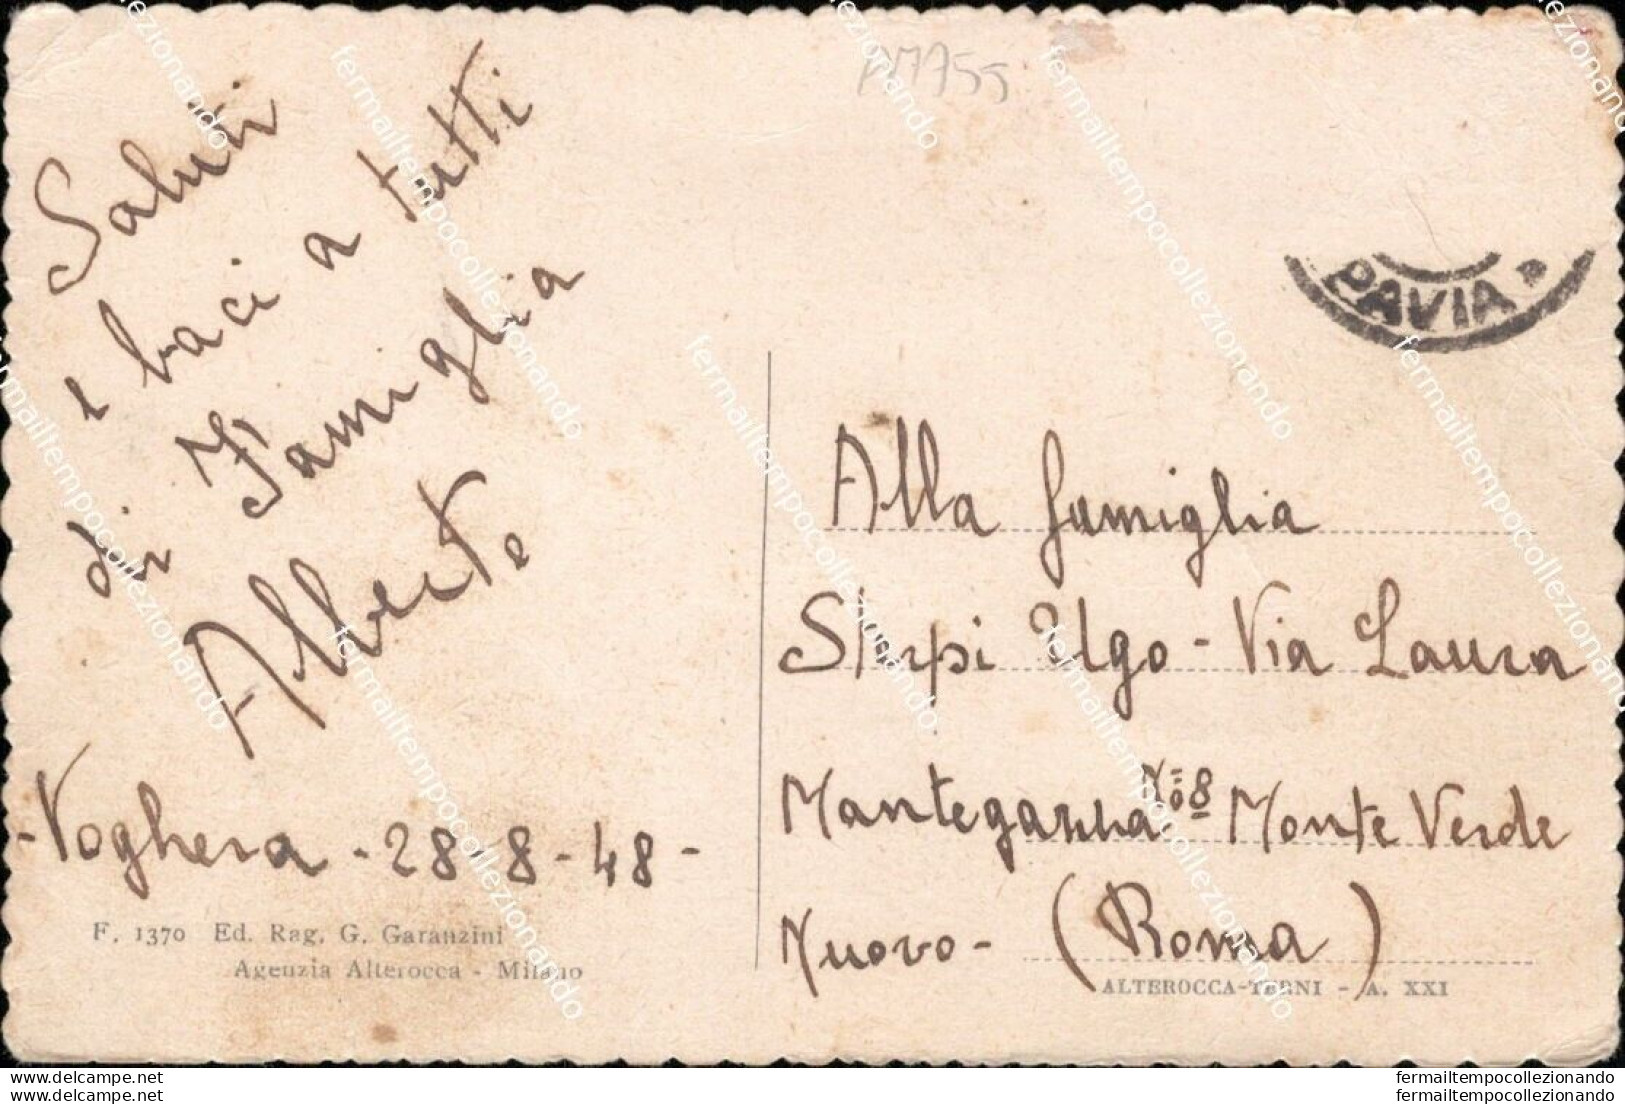 AM755
Saluti
e baci a tutti
di Famiglia
Alberto
-Voghera - 28-8-48-
F. 1370 Ed. Rag. G. Garanzini
Agenzia Alterocca - Milano
PAVIA
Alla famiglia
Sterpi Ugo - Via Laura
Mantegazza N=º8 Monte Verde
Nuovo - (Roma)
ALTEROCCA-TERNI - A. XXI
fermailtempocollezionando
fermailtempocollezionando
fermailtempocollezionando
fermailtempocollezionando